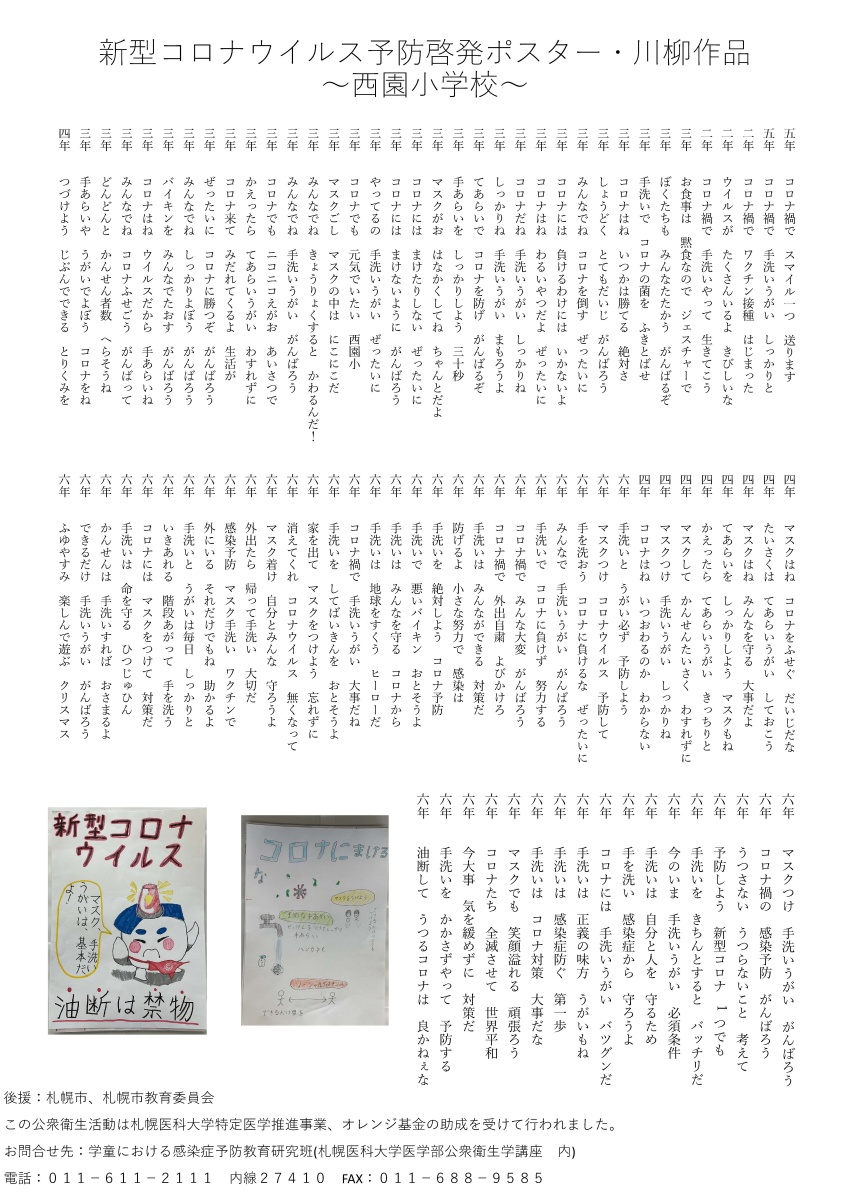 新型コロナウイルス予防啓発ポスター・川柳作品
～西園小学校～
五年 コロナ禍で スマイル一つ 送ります
五年 コロナ禍で 手洗いうがい しっかりと
二年 コロナ禍で ワクチン接種 はじまった
二年 ウイルスが たくさんいるよ きびしいな
二年 コロナ禍で 手洗いやって 生きてこう
三年 お食事は 黙食なので ジェスチャーで
三年 ぼくたちも みんなでたたかう がんばるぞ
三年 手洗いで コロナの菌を ふきとばせ
三年 コロナはね いつかは勝てる 絶対さ
三年 しょうどく とてもだいじ がんばろう
三年 みんなでね コロナを倒す ぜったいに
三年 コロナには 負けるわけには いかないよ
三年 コロナはね わるいやつだよ ぜったいに
三年 コロナだね 手洗いうがい しっかりね
三年 しっかりね 手洗いうがい まもろうよ
三年 てあらいで コロナを防げ がんばるぞ
三年 手あらいを しっかりしよう 三十秒
三年 マスクがお はなかくしてね ちゃんとだよ
三年 コロナには まけたりしない ぜったいに
三年 コロナには まけないように がんばろう
三年 やってるの 手洗いうがい ぜったいに
三年 コロナでも 元気でいたい 西園小
三年 マスクごし マスクの中は にこにこだ
三年 みんなでね きょうりょくすると かわるんだ！
三年 みんなでね 手洗いうがい がんばろう
三年 コロナでも ニコニコえがお あいさつで
三年 かえったら てあらいうがい わすれずに
三年 コロナ来て みだれてくるよ 生活が
三年 ぜったいに コロナに勝つぞ がんばろう
三年 みんなでね しっかりよぼう がんばろう
三年 バイキンを みんなでたおす がんばろう
三年 コロナはね ウイルスだから 手あらいね
三年 みんなでね コロナふせごう がんばって
三年 どんどんと かんせん者数 へらそうね
三年 手あらいや うがいでよぼう コロナをね
四年 つづけよう じぶんでできる とりくみを
四年 マスクはね コロナをふせぐ だいじだな
四年 たいさくは てあらいうがい しておこう
四年 マスクはね みんなを守る 大事だよ
四年 てあらいを しっかりしよう マスクもね
四年 かえったら てあらいうがい きっちりと
四年 マスクして かんせんたいさく わすれずに
四年 マスクつけ 手洗いうがい しっかりね
四年 コロナはね いつおわるのか わからない
六年 手洗いと うがい必ず 予防しよう
六年 マスクつけ コロナウイルス 予防して
六年 手を洗おう コロナに負けるな ぜったいに
六年 みんなで 手洗いうがい がんばろう
六年 手洗いで コロナに負けず 努力する
六年 コロナ禍で みんな大変 がんばろう
六年 コロナ禍で 外出自粛 よびかけろ
六年 手洗いは みんなができる 対策だ
六年 防げるよ 小さな努力で 感染は
六年 手洗いを 絶対しよう コロナ予防
六年 手洗いで 悪いバイキン おとそうよ
六年 手洗いは みんなを守る コロナから
六年 手洗いは 地球をすくう ヒーローだ
六年 コロナ禍で 手洗いうがい 大事だね
六年 手洗いを してばいきんを おとそうよ
六年 家を出て マスクをつけよう 忘れずに
六年 消えてくれ コロナウイルス 無くなって
六年 マスク着け 自分とみんな 守ろうよ
六年 外出たら 帰って手洗い 大切だ
六年 感染予防 マスク手洗い ワクチンで
六年 外にいる それだけでもね 助かるよ
六年 手洗いと うがいは毎日 しっかりと
六年 いきあれる 階段あがって 手を洗う
六年 コロナには マスクをつけて 対策だ
六年 手洗いは 命を守る ひつじゅひん
六年 かんせんは 手洗いすれば おさまるよ
六年 できるだけ 手洗いうがい がんばろう
六年 ふゆやすみ 楽しんで遊ぶ クリスマス
六年 マスクつけ 手洗いうがい がんばろう
六年 コロナ禍の 感染予防 がんばろう
六年 うつさない うつらないこと 考えて
六年 予防しよう 新型コロナ 1つでも
六年 手洗いを きちんとすると バッチリだ
六年 今のいま 手洗いうがい 必須条件
六年 手洗いは 自分と人を 守るため
六年 手を洗い 感染症から 守ろうよ
六年 コロナには 手洗いうがい バツグンだ
六年 手洗いは 正義の味方 うがいもね
六年 手洗いは 感染症防ぐ 第一歩
六年 手洗いは コロナ対策 大事だな
六年 マスクでも 笑顔溢れる 頑張ろう
六年 コロナたち 全滅させて 世界平和
六年 今大事 気を緩めずに 対策だ
六年 手洗いを かかさずやって 予防する
六年 油断して うつるコロナは 良かねぇな
新型コロナ
ウイルス
マスク、手洗い
うがいは、基本だ
よ！
油断は禁物
コロナにまける
な
後援：札幌市、札幌市教育委員会
この公衆衛生活動は札幌医科大学特定医学推進事業、オレンジ基金の助成を受けて行われました。
お問合せ先：学童における感染症予防教育研究班(札幌医科大学医学部公衆衛生学講座 内)
電話：０１１－６１１－２１１１ 内線２７４１０ FAX：０１１－６８８－９５８５